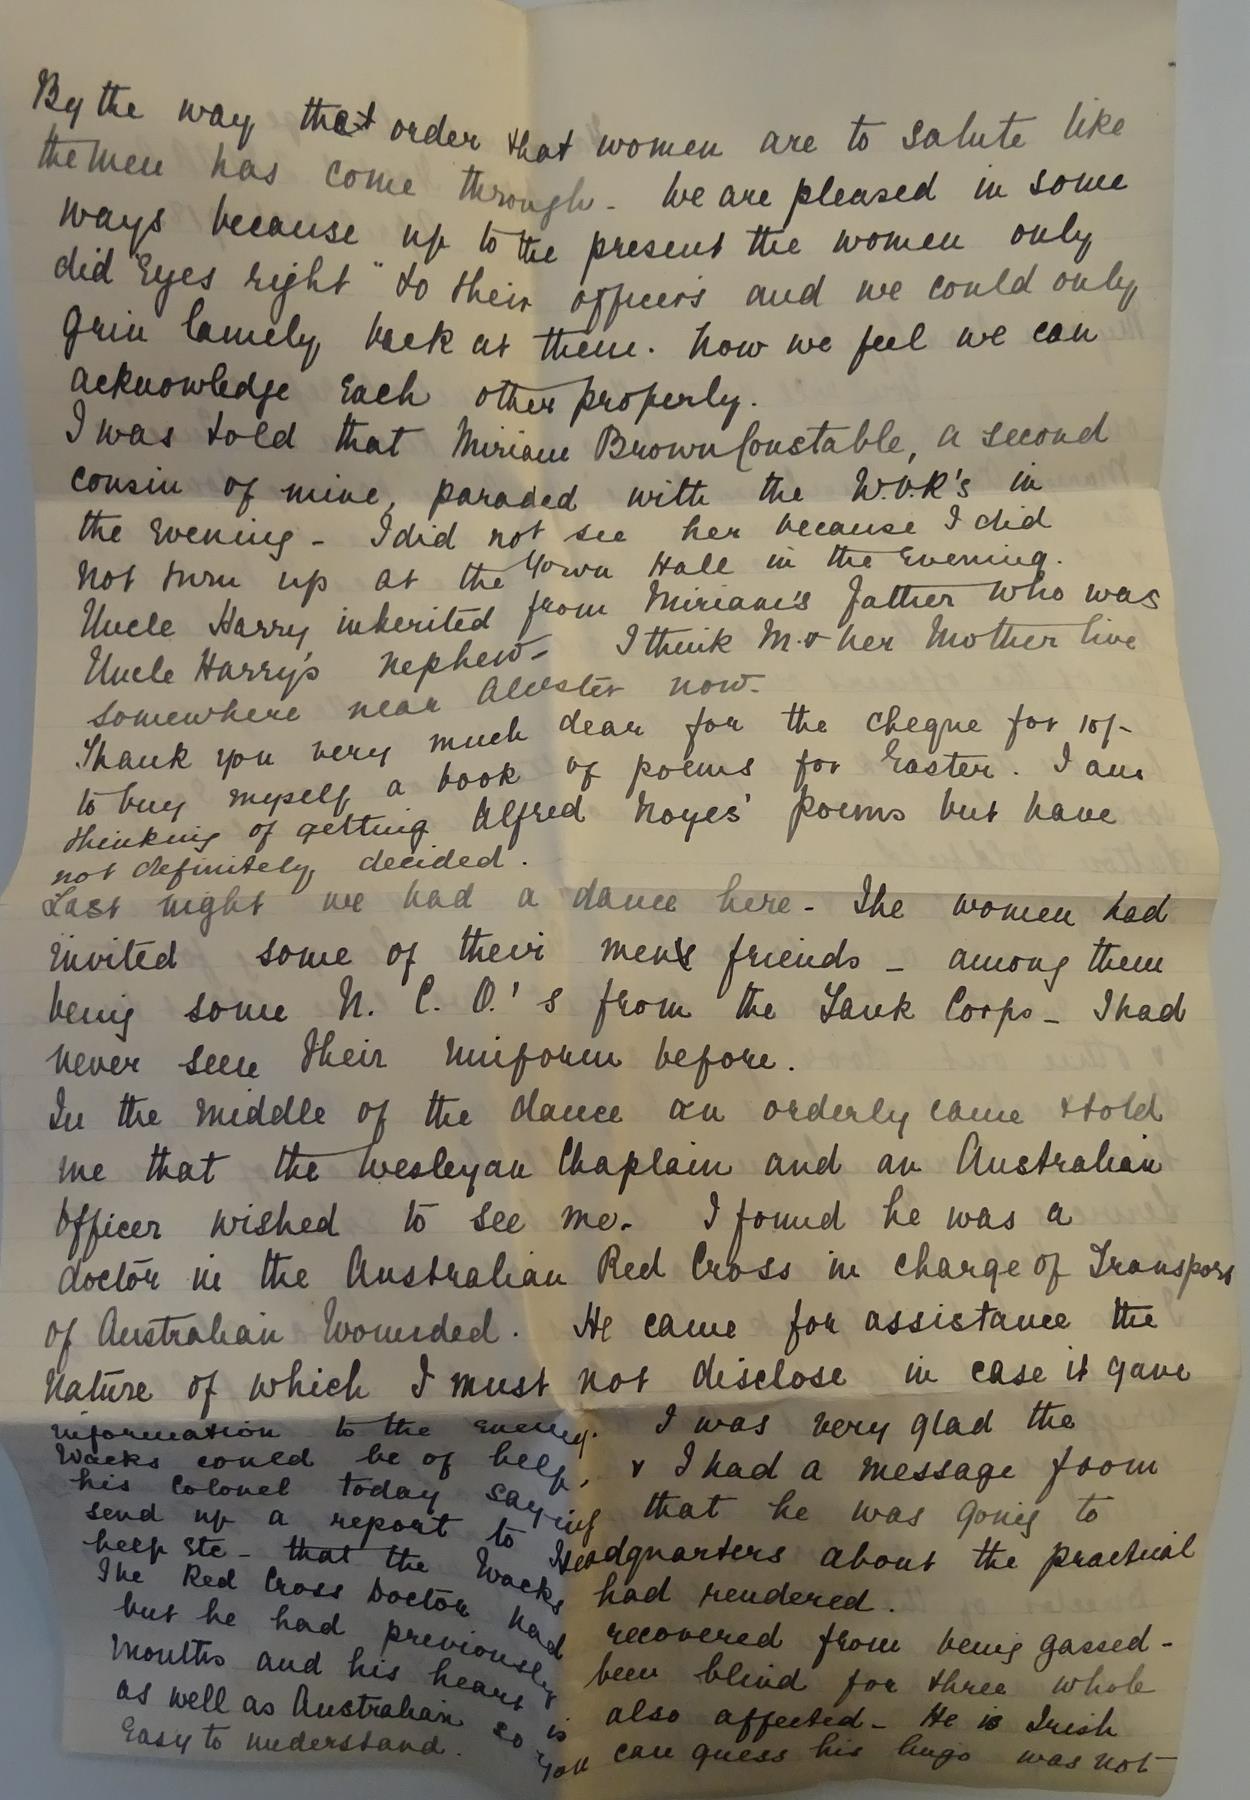 By the way that order that women are to salute like
the men has come through - We are pleased in some
ways because up to the present the women only
did "Eyes right" to their officers and we could only
grin lamely back at them. Now we feel we can
acknowledge each other properly.
I was told that Miriam Brown Constable, a second
cousin of mine, paraded with the W.V.R's in
the Evening - I did not see her because I did
not turn up at the Town Hall in the Evening.
Uncle Harry inherited from Miriam's father who was
Uncle Harry's nephew - I think M. & her Mother live
somewhere near Alcester now.
Thank you very much dear for the cheque for 10/-
to buy myself a book of poems for Easter. I am
thinking of getting Alfred Noyes' poems but have
not definitely decided.
Last night we had a dance here - The women had
invited some of their men friends - among them
being some N. C. O.'s from the Tank Corps - I had
never seen their uniform before.
In the middle of the dance an orderly came & told
me that the Wesleyan Chaplain and an Australian
Officer wished to see me. I found he was a
doctor in the Australian Red Cross in charge of Transport
of Australian Wounded. He came for assistance the
nature of which I must not disclose in case it gave
information to the enemy. I was very glad the
Waacks could be of help, & I had a message from
his Colonel today saying that he was going to
send up a report to Headquarters about the practical
help etc - that the Waacks had rendered.
The Red Cross Doctor had recovered from being gassed -
but he had previously been blind for three whole
months and his heart is also affected - He is Irish
as well as Australian so you can guess his lingo was not
Easy to understand.